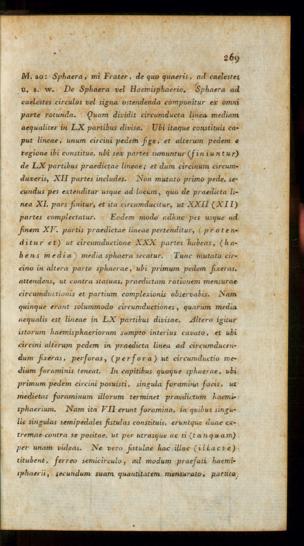 269
M. 20: Sphaera, mi Frater, de quo quaeris, ad caelestes
u. s. w. De Sphaera vel Haemisphaerio. Sphaera ad
caelestes circulos vel signa ostendenda componitur ex omni
parte rotunda. Quam dividit circumducta linea mediam
aequaliter in LX partibus divisa. Ubi itaque constituis ca-
put lineae, unum circini pedem fige, et alterum pedem e
regione ibi constitue, ubi sex partes sumuntur (finiuntur)
de LX partibus praedictae lineae; et dum circinum circum-
duxeris, XII partes includes. Non mutato primo pede, se-
cundus pes extenditur usque ad locum, quo de praedicta li-
nea XI. pars finitur, et ita circumducitur, ut XXII (XII)
partes complectatur. Eodem modo adhuc pes usque ad
finem XV. partis praedictae lineae pertenditur, (proten-
ditur et) ut circumductione XXX partes habeas, (ha-
bens media) media sphaera secatur. Tunc mutato cir-
cino in altera parte sphaerae, ubi primum pedem fixeras,
attendens, ut contra statuas, praedictam rationem mensurae
circumductionis et partium complexionis observabis. Nam
quinque erunt solummodo circumductiones, quarum media
aequalis est lineae in LX partibus divisae. Altero igitur
istorum haemisphaeriorum sumpto interius cavato, et ubi
circini alterum pedem in praedicta linea ad circumducen-
dum fixeras, perforas, (perfora) ut circumductio me-
dium foraminis teneat. In capitibus quoque sphaerae, ubi
primum pedem circini posuisti, singula foramina facis, ut
medietas foraminum illorum terminet praedictum haemi-
sphaerium. Nam ita VII erunt foramina, in quibus singu-
lis singulas semipedales fistulas constituis, eruntque duae ex-
tremae contra se positae, ut per utrasque ac si (tanquam)
per unam videas. Ne vero fistulae hac illac (illacve)
titubent, ferreo semicirculo, ad modum praefati haemi-
sphaerii, secundum suam quantitatem mensurato, partito